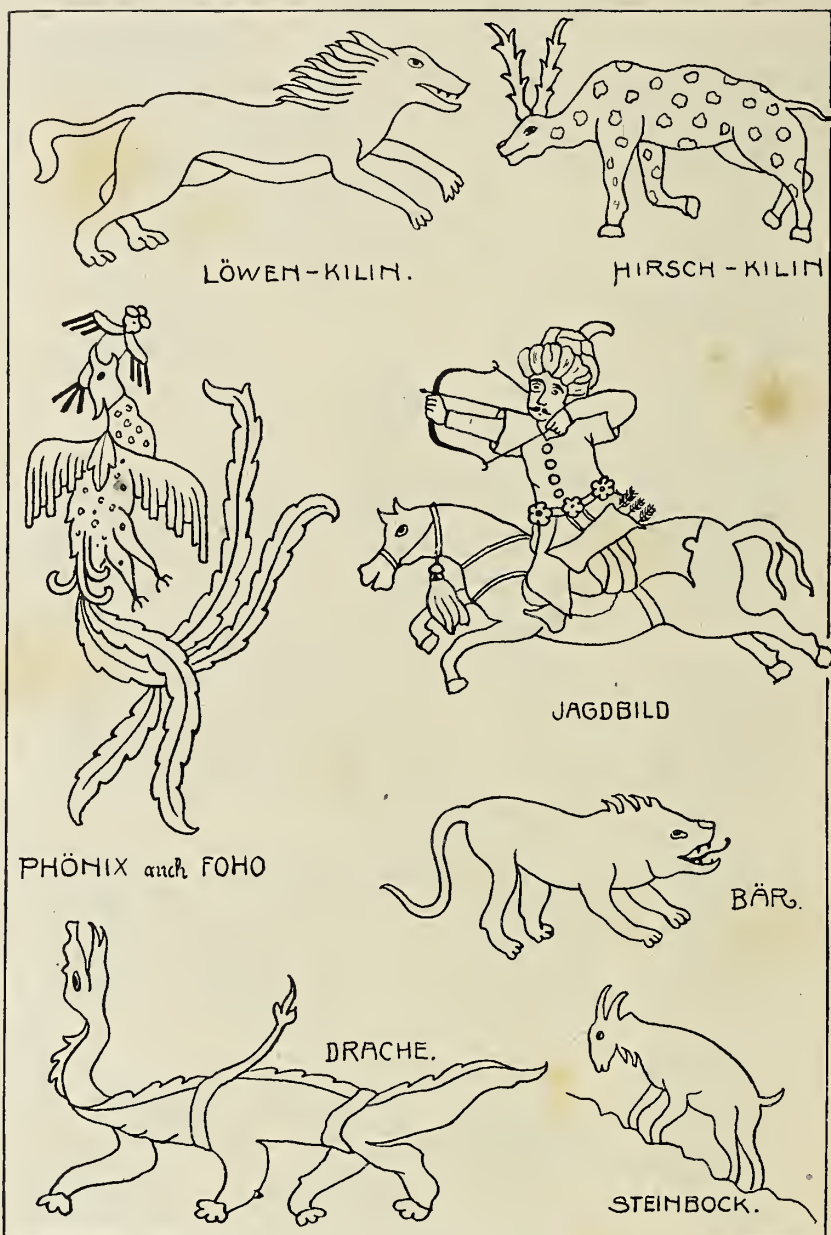 LÖWEN-KILIN.
HIRSCH-KILIN
JAGDBILD
PHÖNIX auch FOHO
BÄR.
DRACHE.
STEINBOCK.